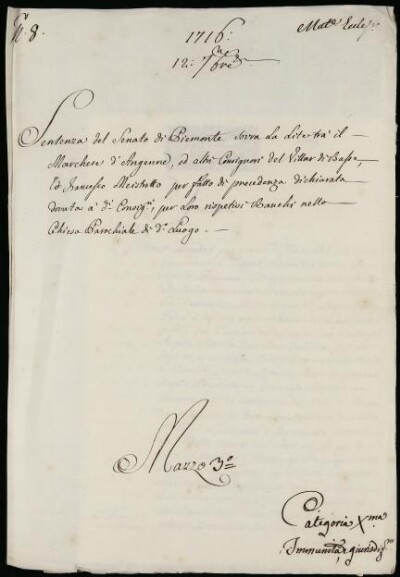 N. 8.
1716.
Mat.e Eccl.
12: 7bre
Sentenza del Senato di Piemonte sovra la Lite trà il
Marchese d'Angenne, ed altri Consignori del Villar di Basse,
ed Francesco Meistratto per fatto di precedenza dichiarata
dovuta a' d.i Consig.ri per loro rispetivi Banchi nella
Chiesa Parochiale di d.o Luogo.
Mazzo 3.o
Categoria X.ma
Immunità, e giurisdiz.ne